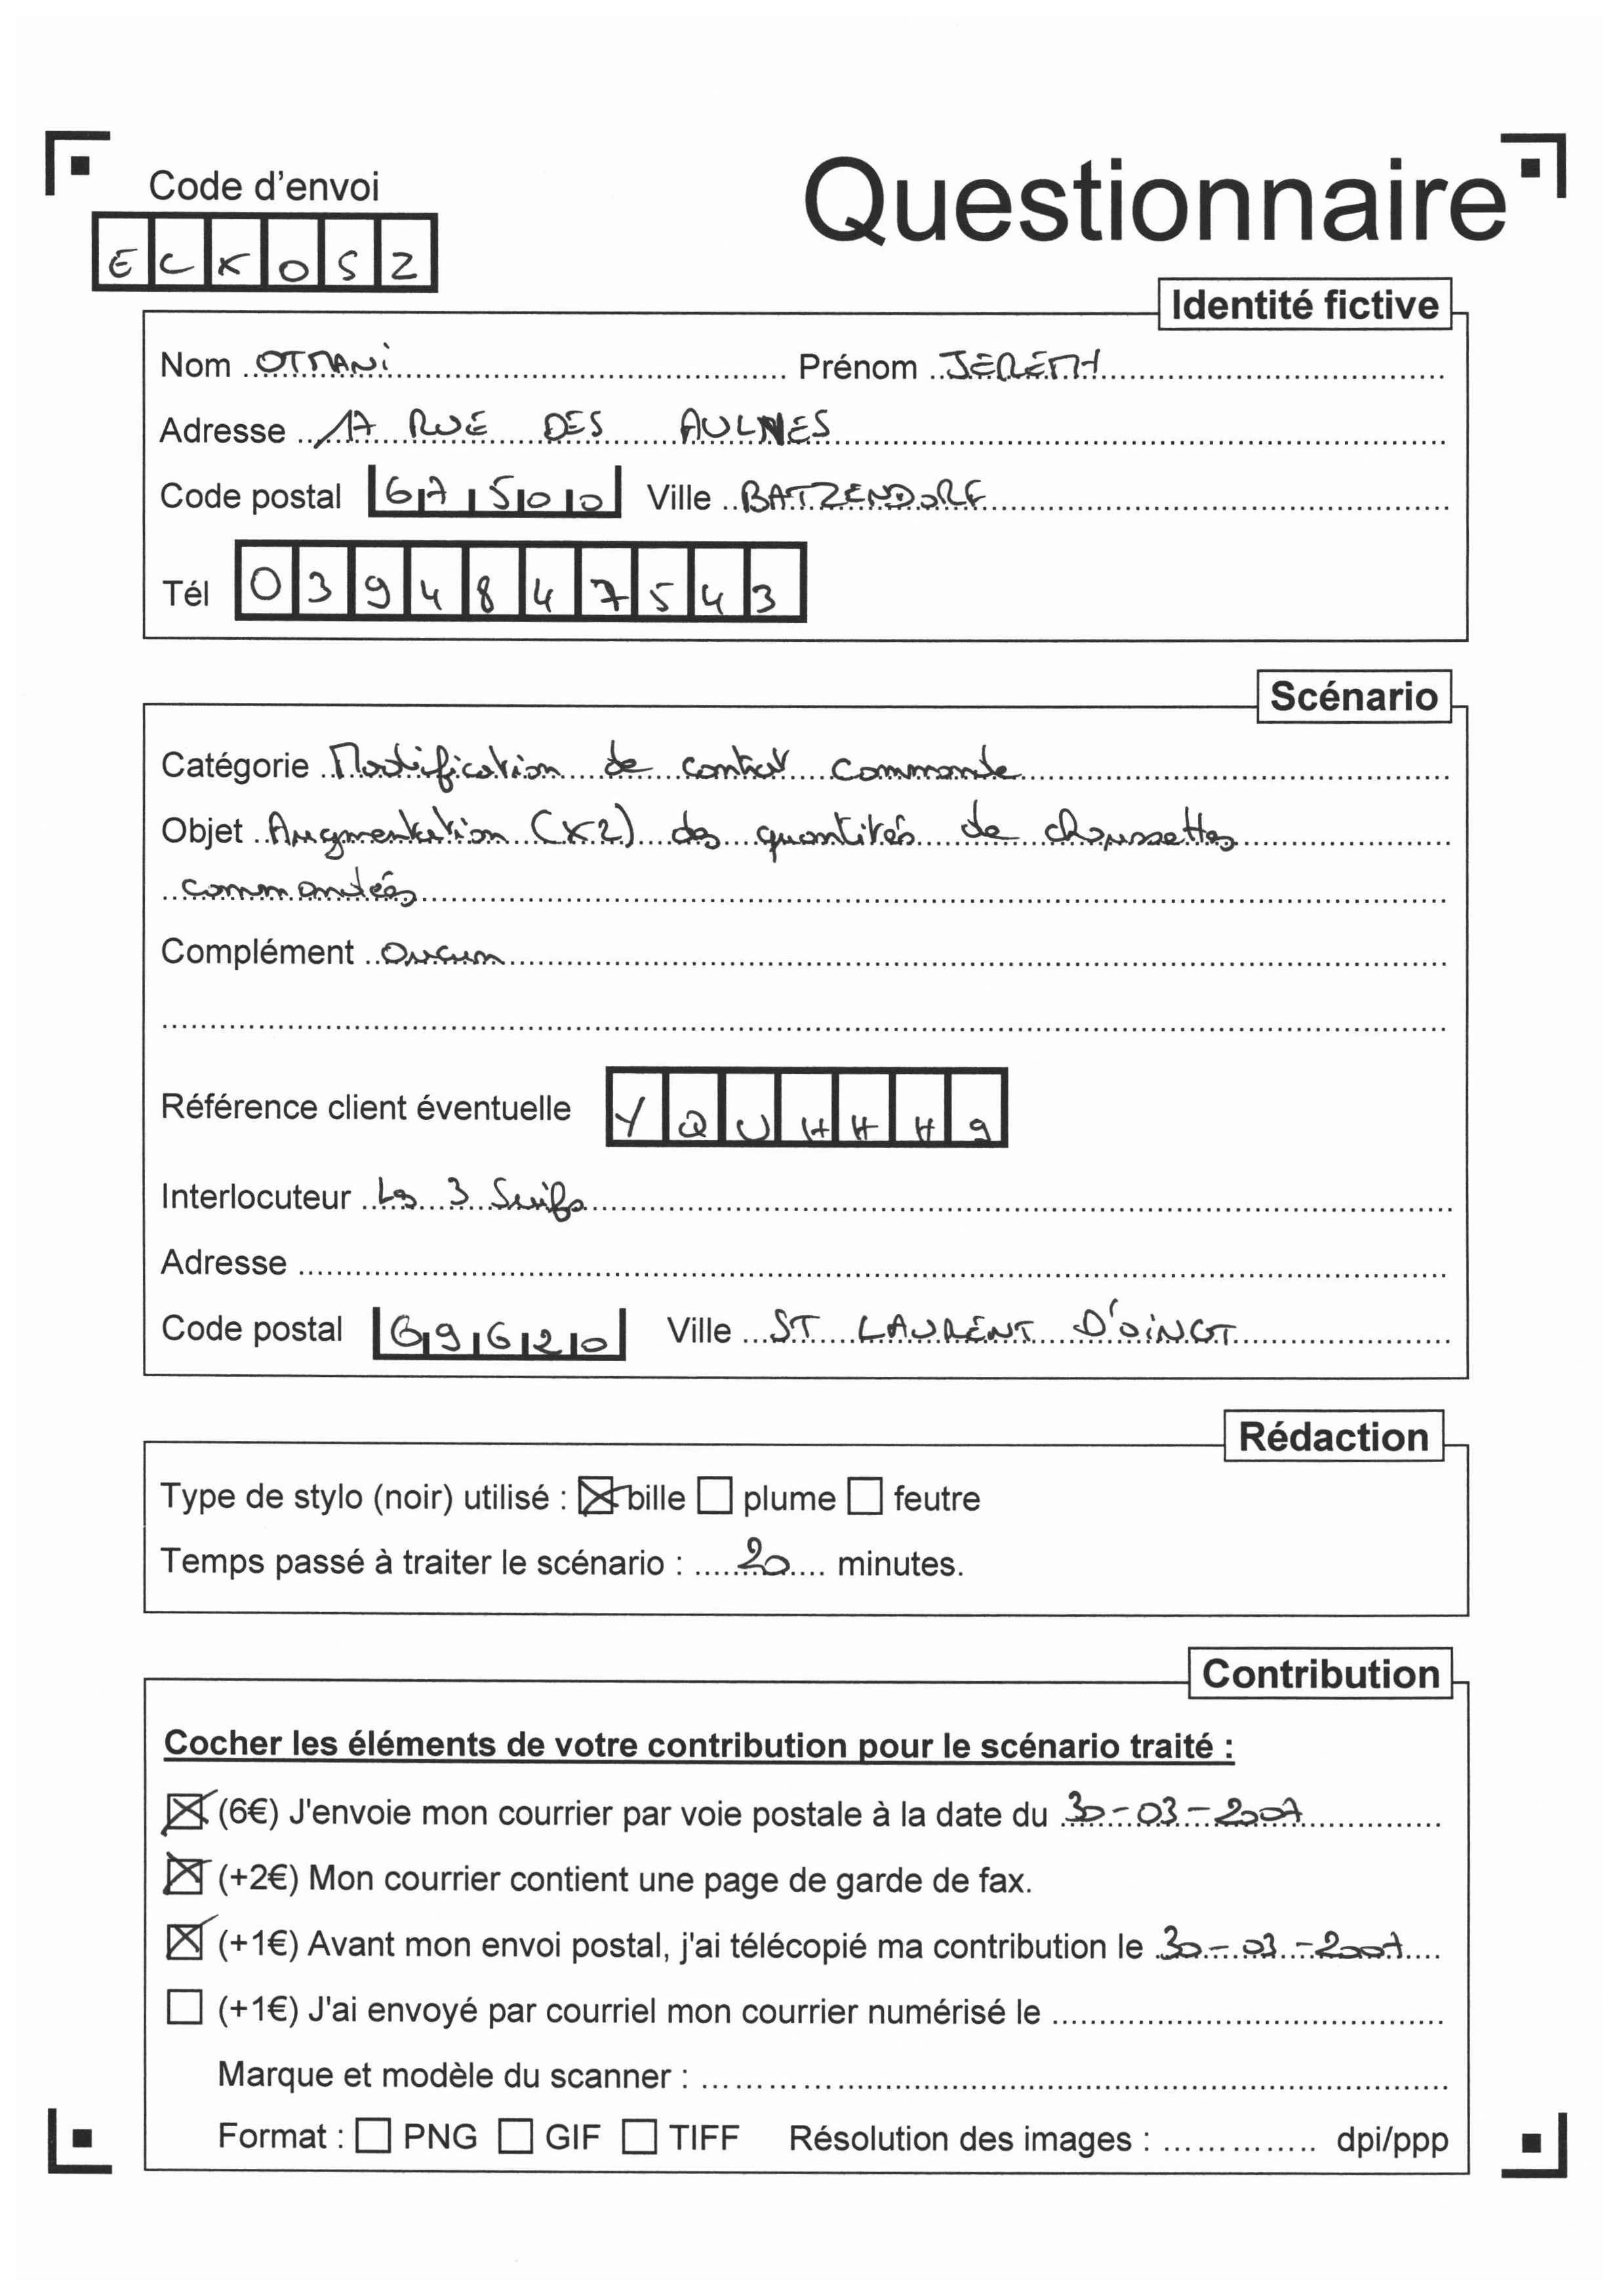 Code d'envoi
Questionnaire
E C K 0 S 2
Identité fictive
Nom OTMANI Prénom JEREMY
Adresse 17 RUE DES AULNES
Code postal 67500 Ville BATZENDORF
Tél 0394847543
Scénario
Catégorie Modification de contrat commande
Objet Augmentation (x2) des quantités de chaussettes
commandées
Complément aucun
Référence client éventuelle YQUHHH9
Interlocuteur Les 3 Suisses
Adresse
Code postal 69620 Ville ST LAURENT D'OINGT
Rédaction
Type de stylo (noir) utilisé : ☒ bille ☐ plume ☐ feutre
Temps passé à traiter le scénario : 20 minutes.
Contribution
Cocher les éléments de votre contribution pour le scénario traité :
☒ (6€) J'envoie mon courrier par voie postale à la date du 30-03-2007
☒ (+2€) Mon courrier contient une page de garde de fax.
☒ (+1€) Avant mon envoi postal, j'ai télécopié ma contribution le 30-03-2007
☐ (+1€) J'ai envoyé par courriel mon courrier numérisé le
Marque et modèle du scanner :
Format : ☐ PNG ☐ GIF ☐ TIFF Résolution des images : dpi/ppp